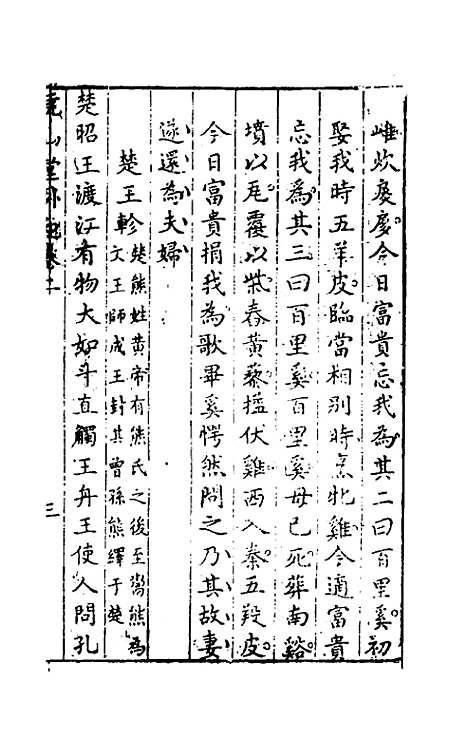 雌炊扊扅今日富貴忘我為其二曰百里奚初
娶我時五羊皮臨當相別時烹牝雞今適富貴
忘我為其三曰百里奚百里奚母已死葬南谿
墳以瓦覆以柴舂黄藜搤伏雞西入秦五羖皮
今日富貴捐我為歌畢奚愕然問之乃其故妻
遂還為夫婦
楚王軫
楚熊姓黄帝有熊氏之後至鬻熊為
文王師成王封其曾孫熊繹于楚
楚昭王渡江有物大如斗直觸王舟王使人問孔
堯山堂外紀卷二
三